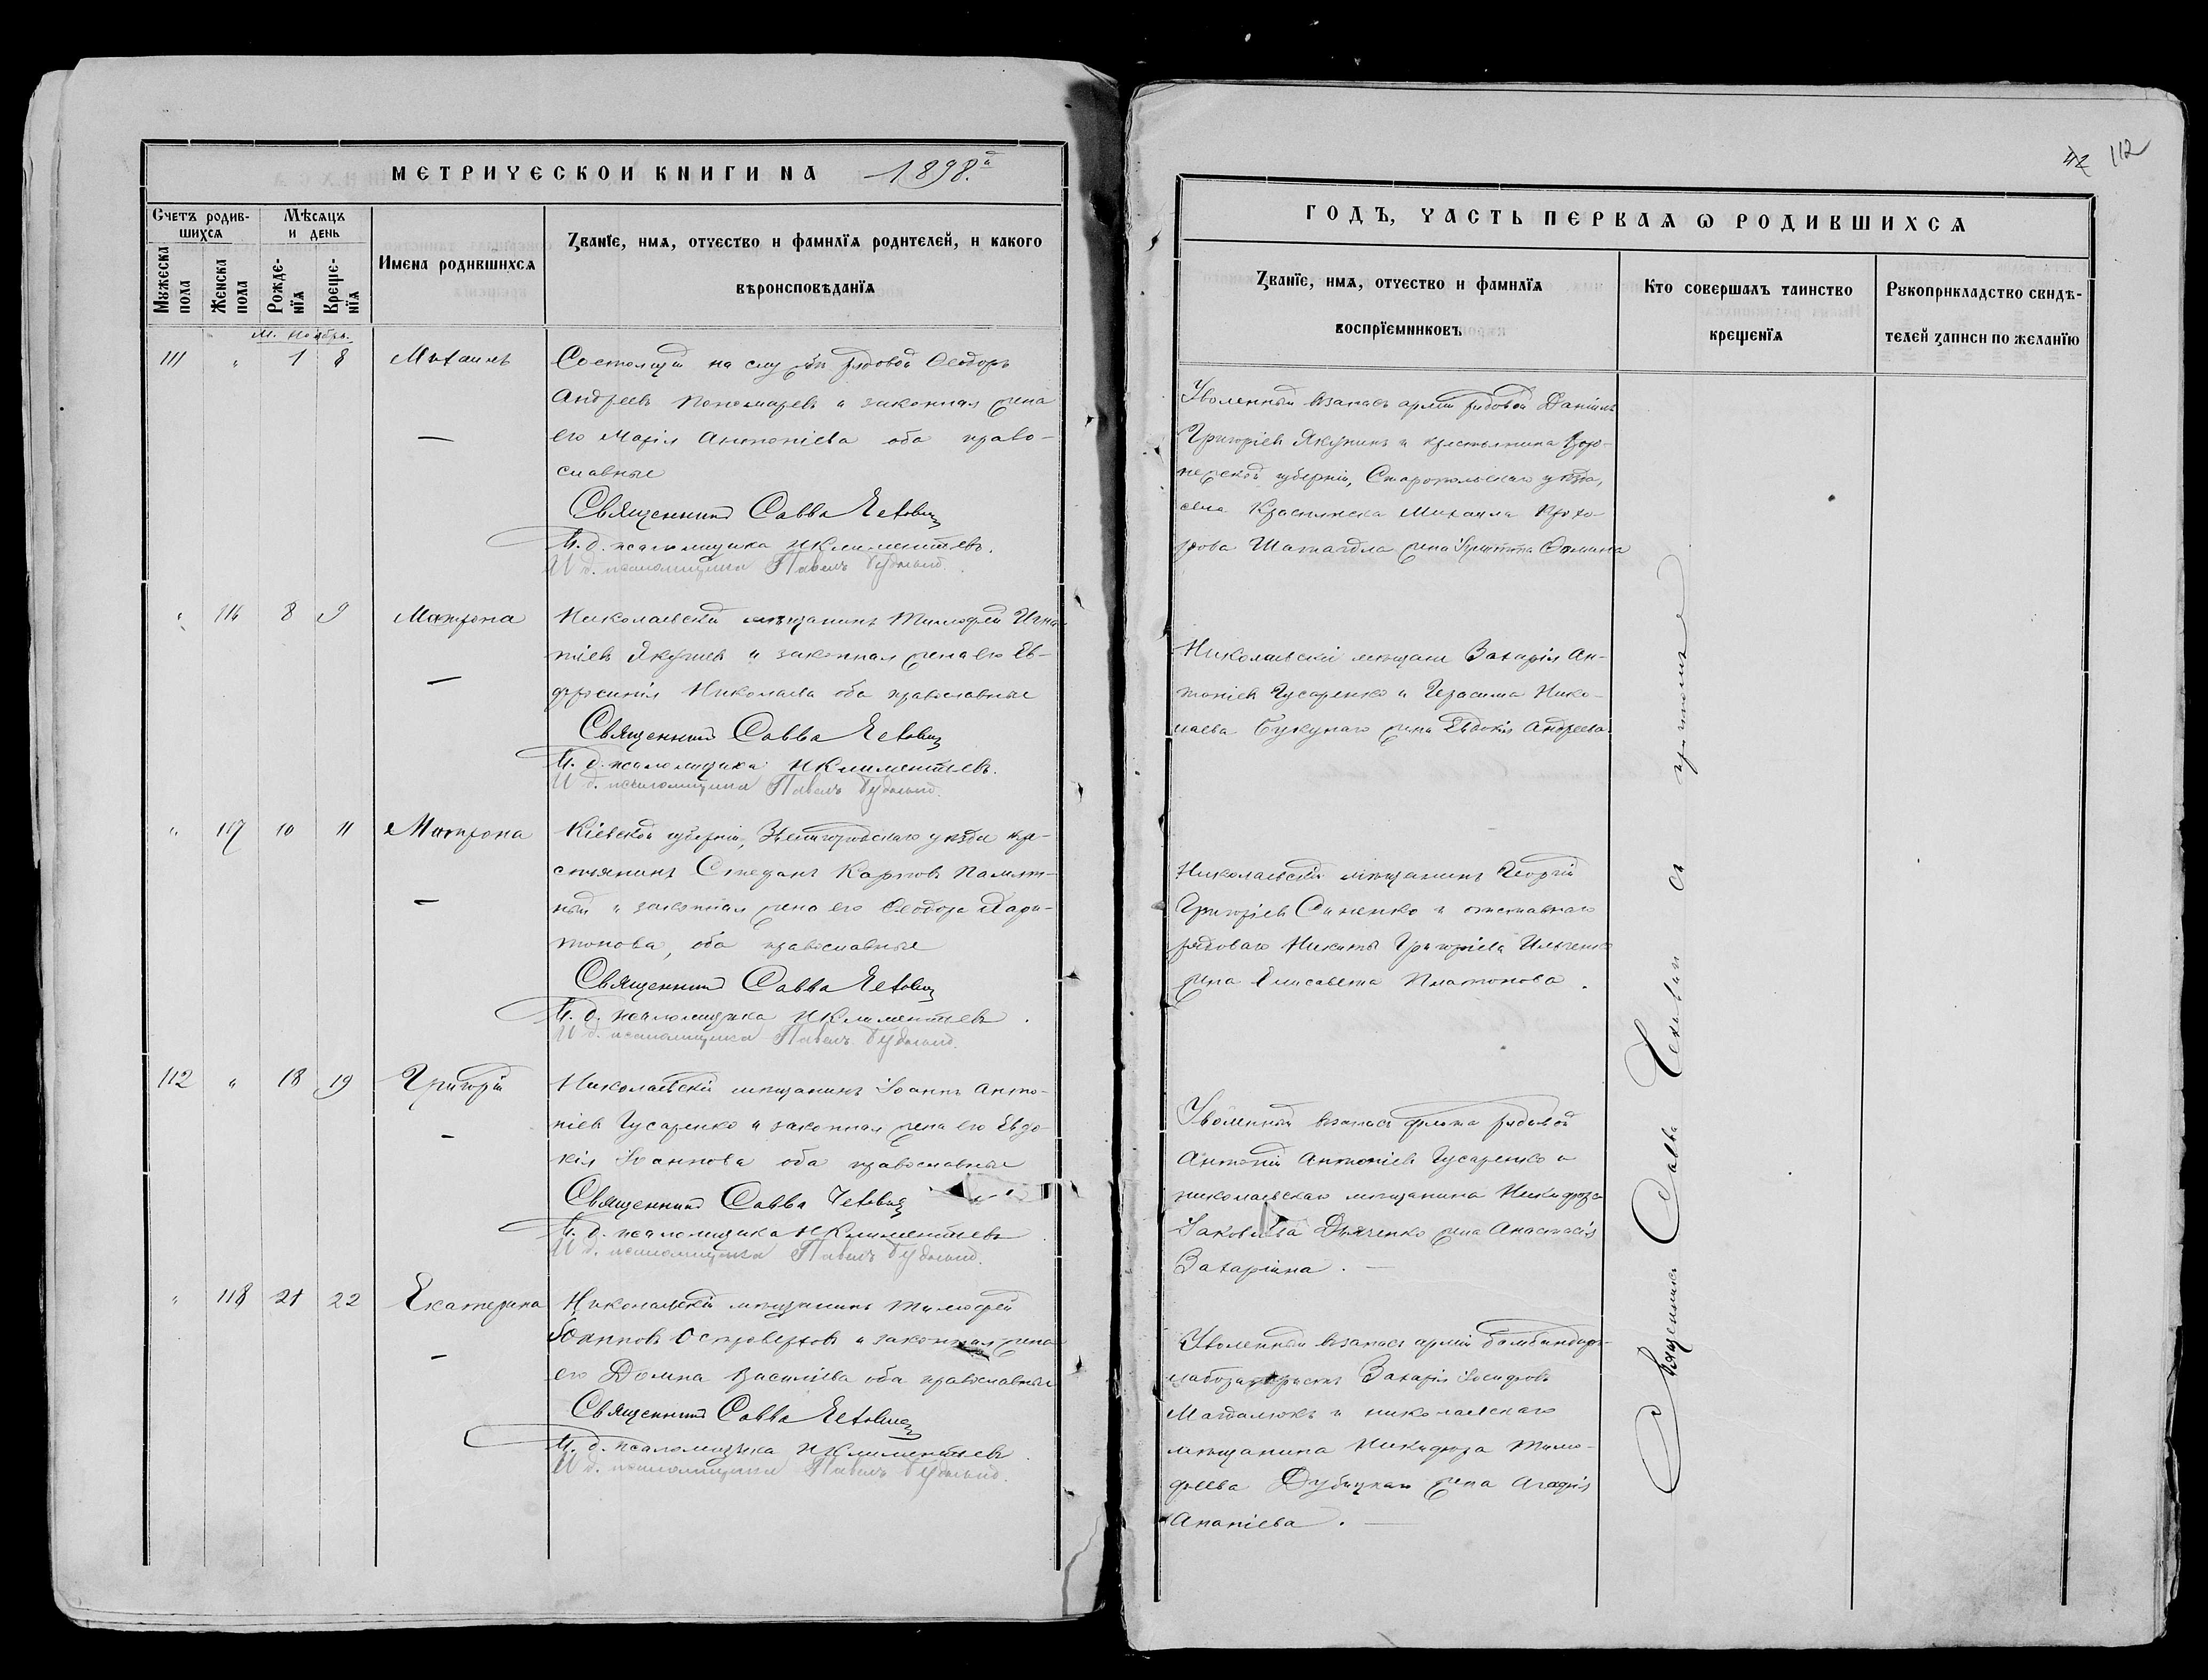 МЕТРИЧЕСКОЙ КНИГИ НА 1898.й
Счетъ родив-
шихся
Мѣсяцъ
и день
Мужеска
пола
Женска
пола
Рожде-
нія
Креще-
нія
Имена родившихся
Званіе, имя, отчество и фамилія родителей, и какого
вѣроисповѣданія
М. Ноябрь.
111 " 1 8 Михаилъ
Состоящій на службѣ рядовой Ѳеодоръ
Андреевъ Пономаревъ и законная жена
его Марія Антоніева оба право-
славные
Священникъ Савва Чехович
И. д. псаломщика Н Климентьевъ.
И д. псаломщика Павелъ
" 116 8 9 Матрона
Николаевскій мѣщанинъ Тимофей Игна-
тіевъ и законная жена его Ев-
фросинія Николаева оба православные
Священникъ Савва Чехович
И. д. псаломщика Н Климентьевъ.
И д. псаломщика Павелъ
" 117 10 11 Матрона
Кіевской губерніи, Звенигородскаго уѣзда кре-
стьянинъ Стефанъ Карповъ Палат-
ный и законная жена его Ѳеодора Хари-
тонова, оба православные
Священникъ Савва Чехович
И. д. псаломщика Н Климентьевъ
И д. псаломщика Павелъ
112 " 18 19 Григорій
Николаевскій мѣщанинъ Іоаннъ Анто-
ніевъ Гусаренко и законная жена его Евдо-
кія Іоаннова оба православные
Священникъ Савва Чехович
И. д. псаломщика Н Климентьевъ
И д. псаломщика Павелъ
" 118 21 22 Екатерина
Николаевскій мѣщанинъ Тимофей
Іоанновъ Островерховъ и законная жена
его Домна Василіева оба православные
Священникъ Савва Чехович
И. д. псаломщика Н Климентьевъ
И д. псаломщика Павелъ
42 112
ГОДЪ, ЧАСТЬ ПЕРВАЯ Ѡ РОДИВШИХСЯ
Званіе, имя, отчество и фамилія
воспріемниковъ
Кто совершалъ таинство
крещенія
Рукоприкладство свидѣ-
телей записи по желанію
Уволенный въ запасъ арміи рядовой Даніилъ
Григоріевъ Якунинъ и крестьянина
губерніи, уѣзда,
села Михаила Прохо-
рова жена Ѳомина
Николаевскій мѣщане Захарія Ан-
тоніевъ Гусаренко и Герасима Нико-
лаева жена Евдокія Андреева
Николаевскій мѣщанинъ Георгій
Григоріевъ Синенко и отставнаго
рядоваго Никиты Григоріева Ильченко
жена Елисавета Платонова.
Уволенный въ запасъ флота рядовой
Антоній Антоніевъ Гусаренко и
николаевскаго мѣщанина Никифора
Іаковлева Дьяченко жена Анастасія
Захаріина.
Уволенный въ запасъ арміи бомбандиръ-
Захарія Іосифовъ
и николаевскаго
мѣщанина Никифора Тимо-
феева жена Агафія
Ананіева.
Священникъ Савва Чехович съ причтомъ